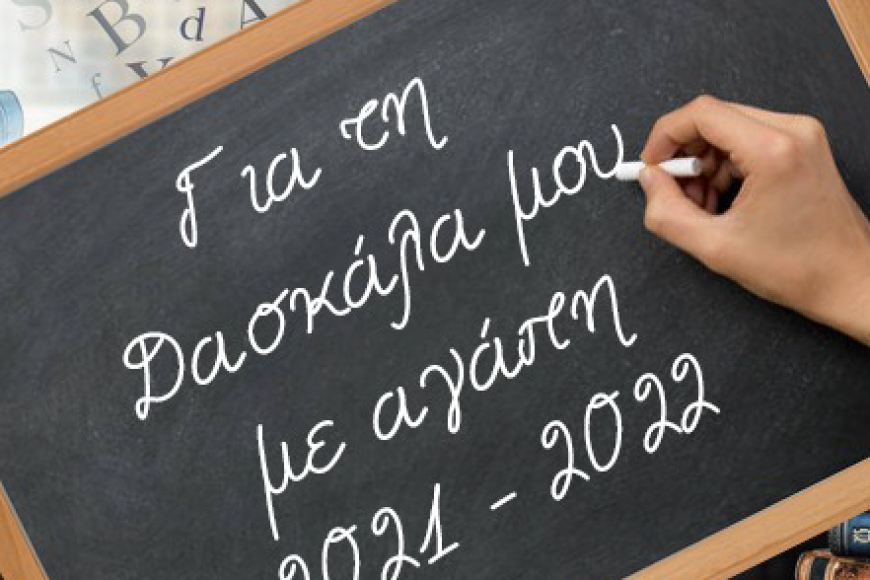 Για τη
Δασκάλα μου
με αγάπη
2021 - 2022